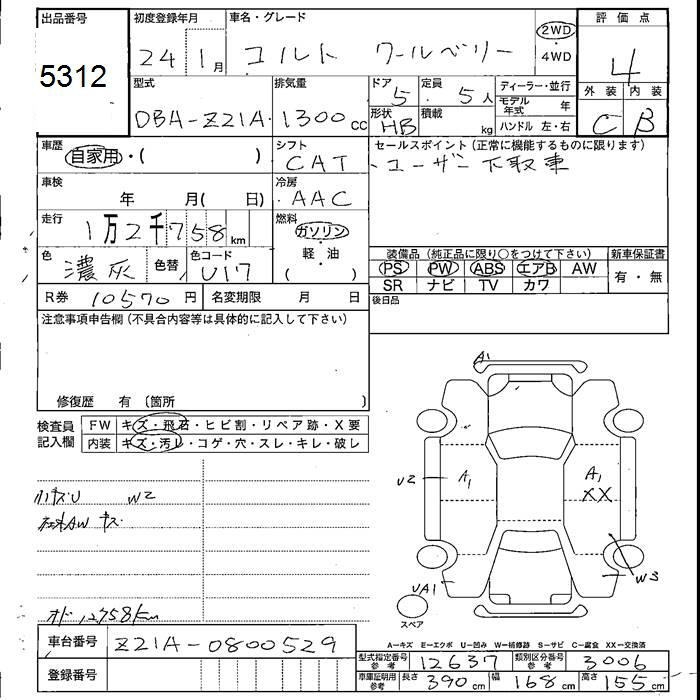 出品番号
5312
初度登録年月
24 1月
車名・グレード
コルト クールベリー
2WD
・
4WD
評価点
4
外装 内装
C B
型式
DBA-Z21A
排気量
1300cc
ドア 5
形状 HB
定員 5人
積載 kg
ディーラー・並行
モデル年式 年
ハンドル 左・右
車歴
自家用・( )
シフト
CAT
セールスポイント(正常に機能するものに限ります)
・ユーザー下取車
車検
年 月( 日)
冷房
AAC
走行
1万2千758km
燃料
ガソリン
・
軽・油
( )
色
濃灰
色替
色コード
U17
装備品(純正品に限り○をつけて下さい)
PS PW ABS エアB AW
SR ナビ TV カワ
新車保証書
有・無
R券 10570円
名変期限 月 日
後日品
注意事項申告欄(不具合内容等は具体的に記入して下さい)
修復歴 有 〔箇所 〕
検査員
記入欄
FW キズ・飛石・ヒビ割・リペア跡・X要
内装 キズ・汚レ・コゲ・穴・スレ・キレ・破レ
小キズU W2
社外AW キズ
オド 12758km
A1
U2
A1
A1
XX
W3
UA1
スペア
車台番号 Z21A-0800529
登録番号
A-キズ E-エクボ U-凹み W-補修跡 S-サビ C-腐食 XX-交換済
型式指定番号 参考 12637
類別区分番号 参考 3006
車庫証明用 参考 長さ 390cm 幅 168cm 高さ 155cm